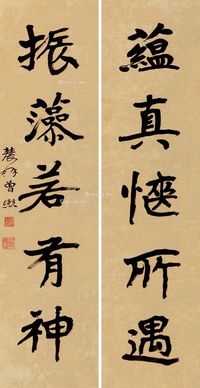 蘊真愜所遇
振藻若有神
農髯曾熙